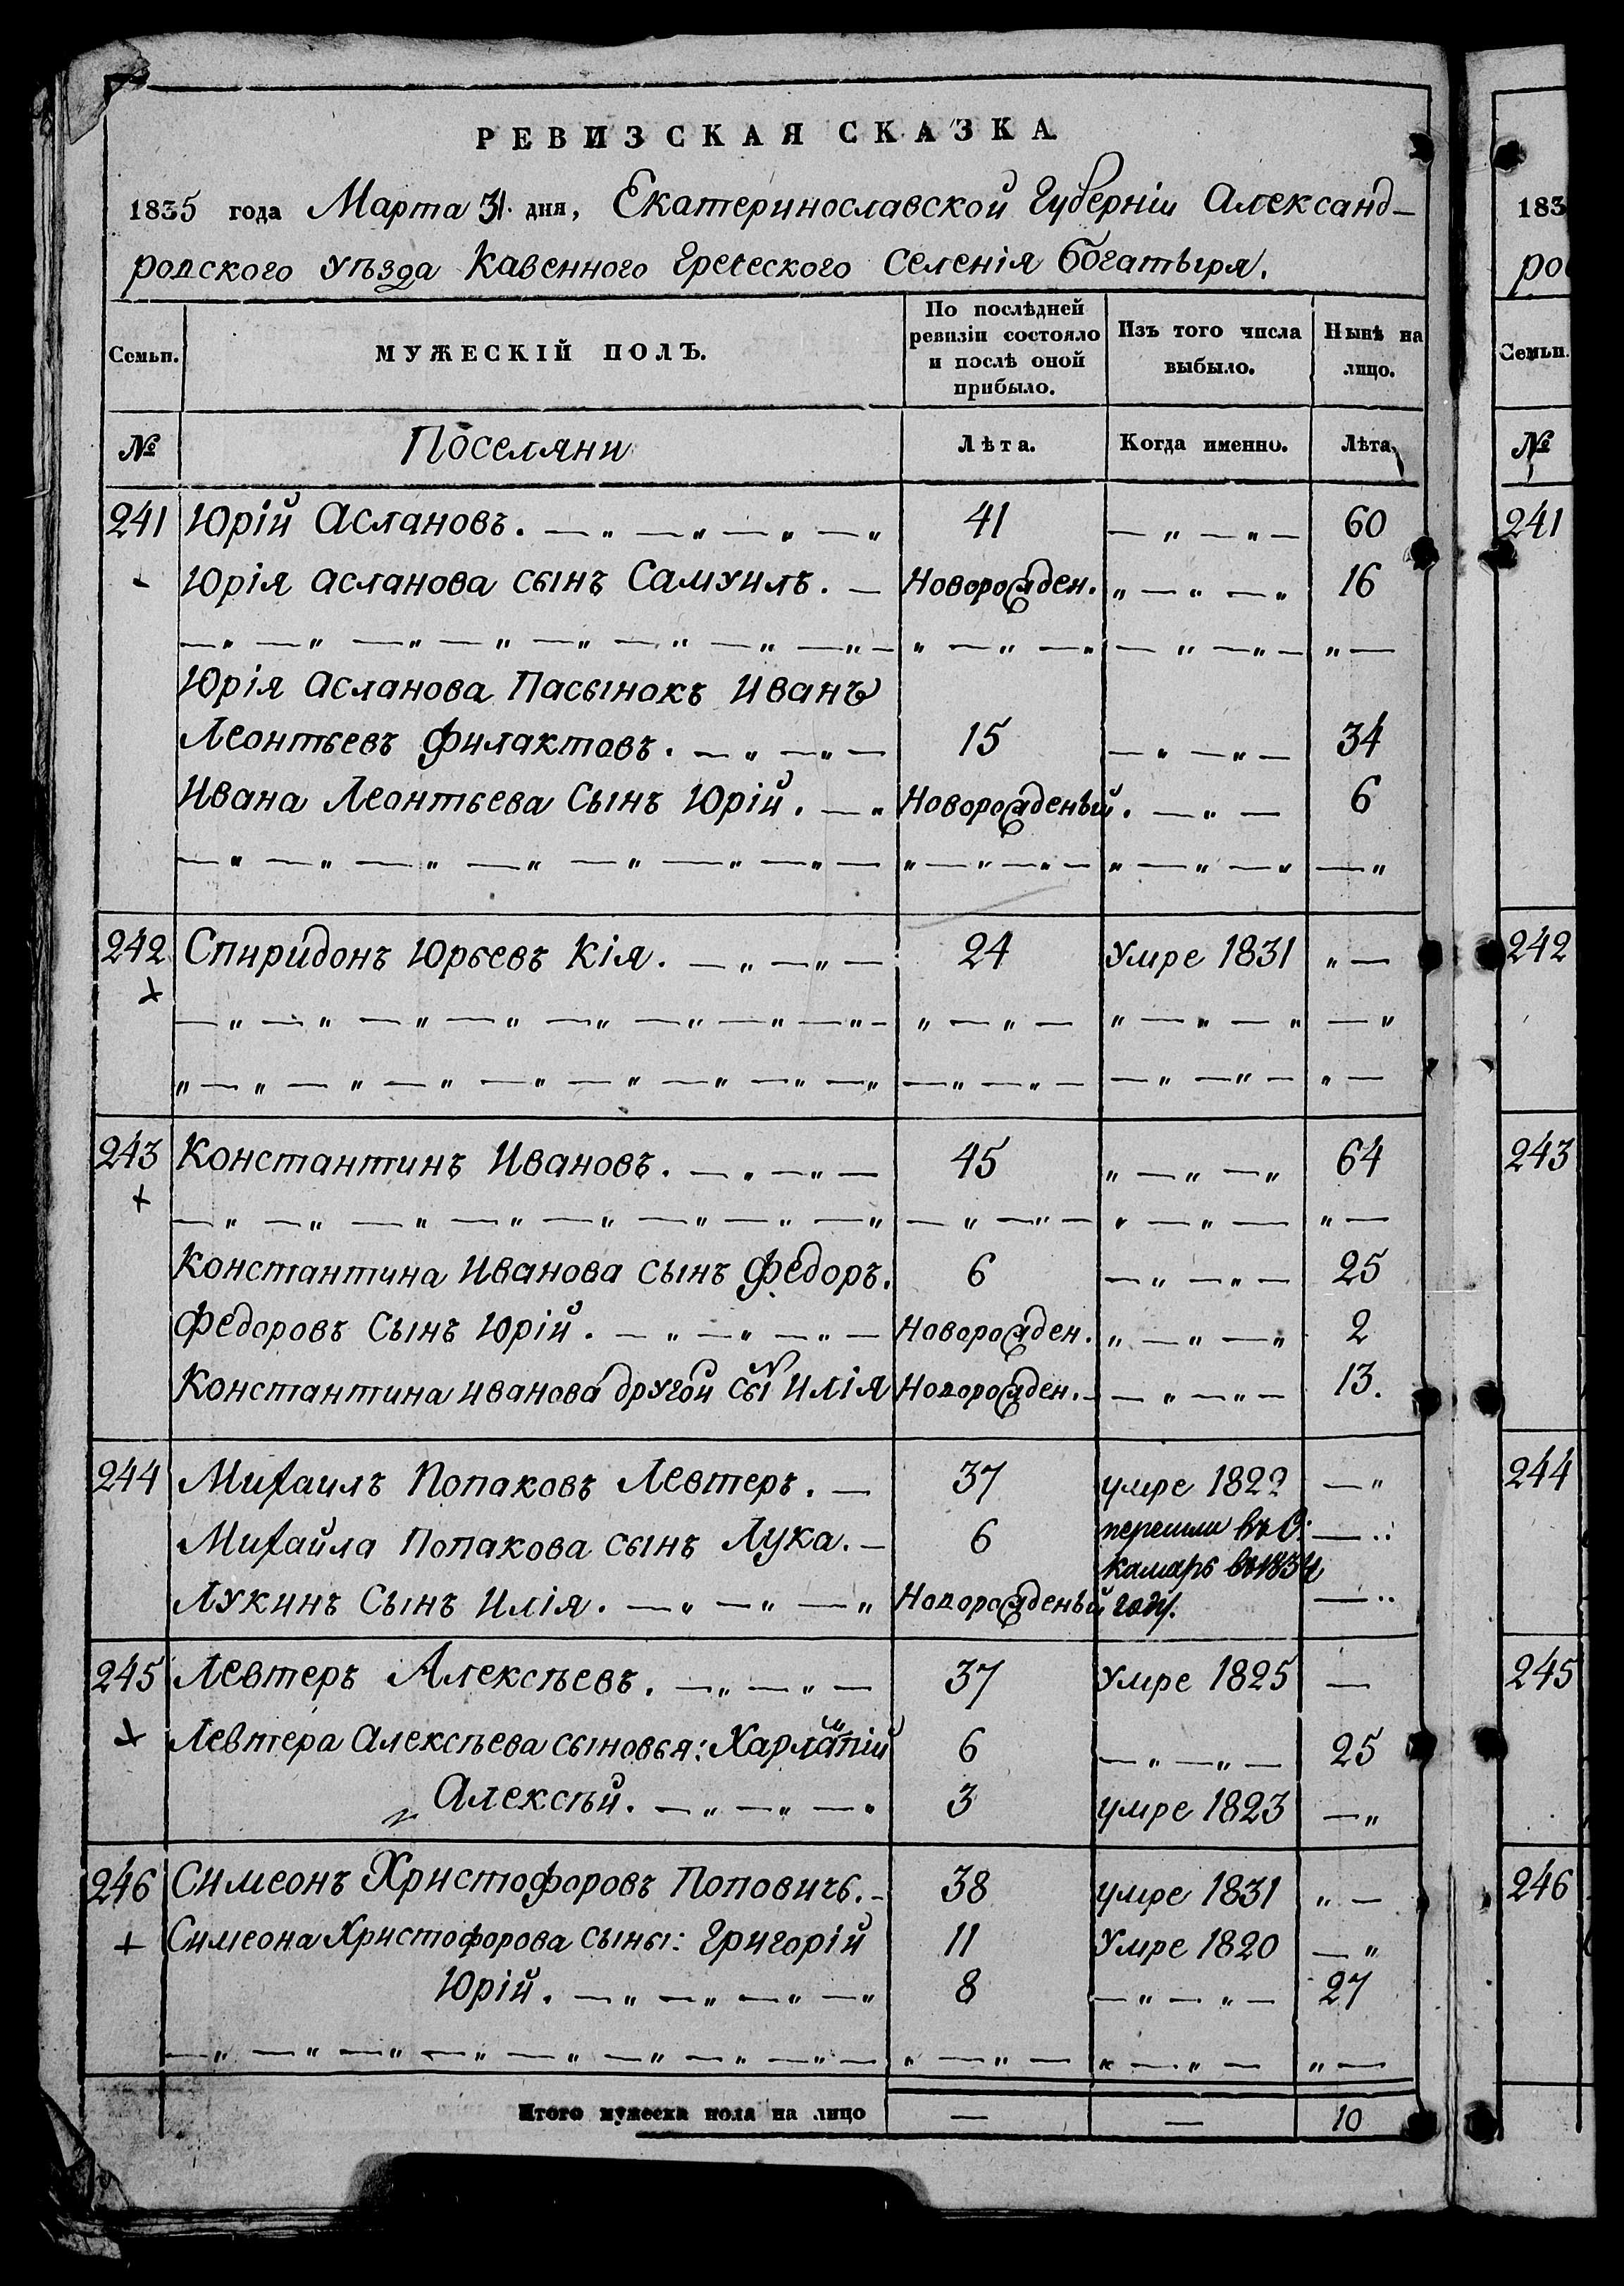 РЕВИЗСКАЯ СКАЗКА
1835 года Марта 31. дня, Екатеринославской Губерніи Александ-
ровского уѣзда Казенного Греческого Селенія Богатыря.
Семьи. МУЖЕСКІЙ ПОЛЪ. По послѣдней ревизіи состояло и послѣ оной прибыло. Изъ того числа выбыло. Нынѣ на лицо.
№ Поселяни Лѣта. Когда именно. Лѣта.
241 Юрій Аслановъ. 41 60
Юрія Асланова сынъ Самуилъ. Новорожден. 16
Юрія Асланова Пасынокъ Иванъ
Леонтьевъ Филактовъ. 15 34
Ивана Леонтьева Сынъ Юрій. Новорожденый. 6
242 Спиридонъ Юрьевъ Кія. 24 Умре 1831
+
243 Константинъ Ивановъ. 45 64
+
Константина Иванова сынъ Федоръ. 6 25
Федоровъ Сынъ Юрій. Новорожден. 2
Константина Иванова другой сын Илія Новорожден. 13.
244 Михаилъ Попаковъ Левтеръ. 37 умре 1822
Михайла Попакова сынъ Лука. 6 перешли въ С:
Камарь въ 1834
Лукинъ Сынъ Илія. Новорожденый году.
245 Левтеръ Алексѣевъ. 37 Умре 1825
+ Левтера Алексѣева сыновья: Харлампій 6 25
Алексѣй. 3 умре 1823
246 Симеонъ Христофоровъ Поповичь. 38 умре 1831
+ Симеона Христофорова сыны: Григорій 11 Умре 1820
Юрій. 8 27
Итого мужеска пола на лицо — — 10
183
ро
Семьи.
№
241
242
243
244
245
246